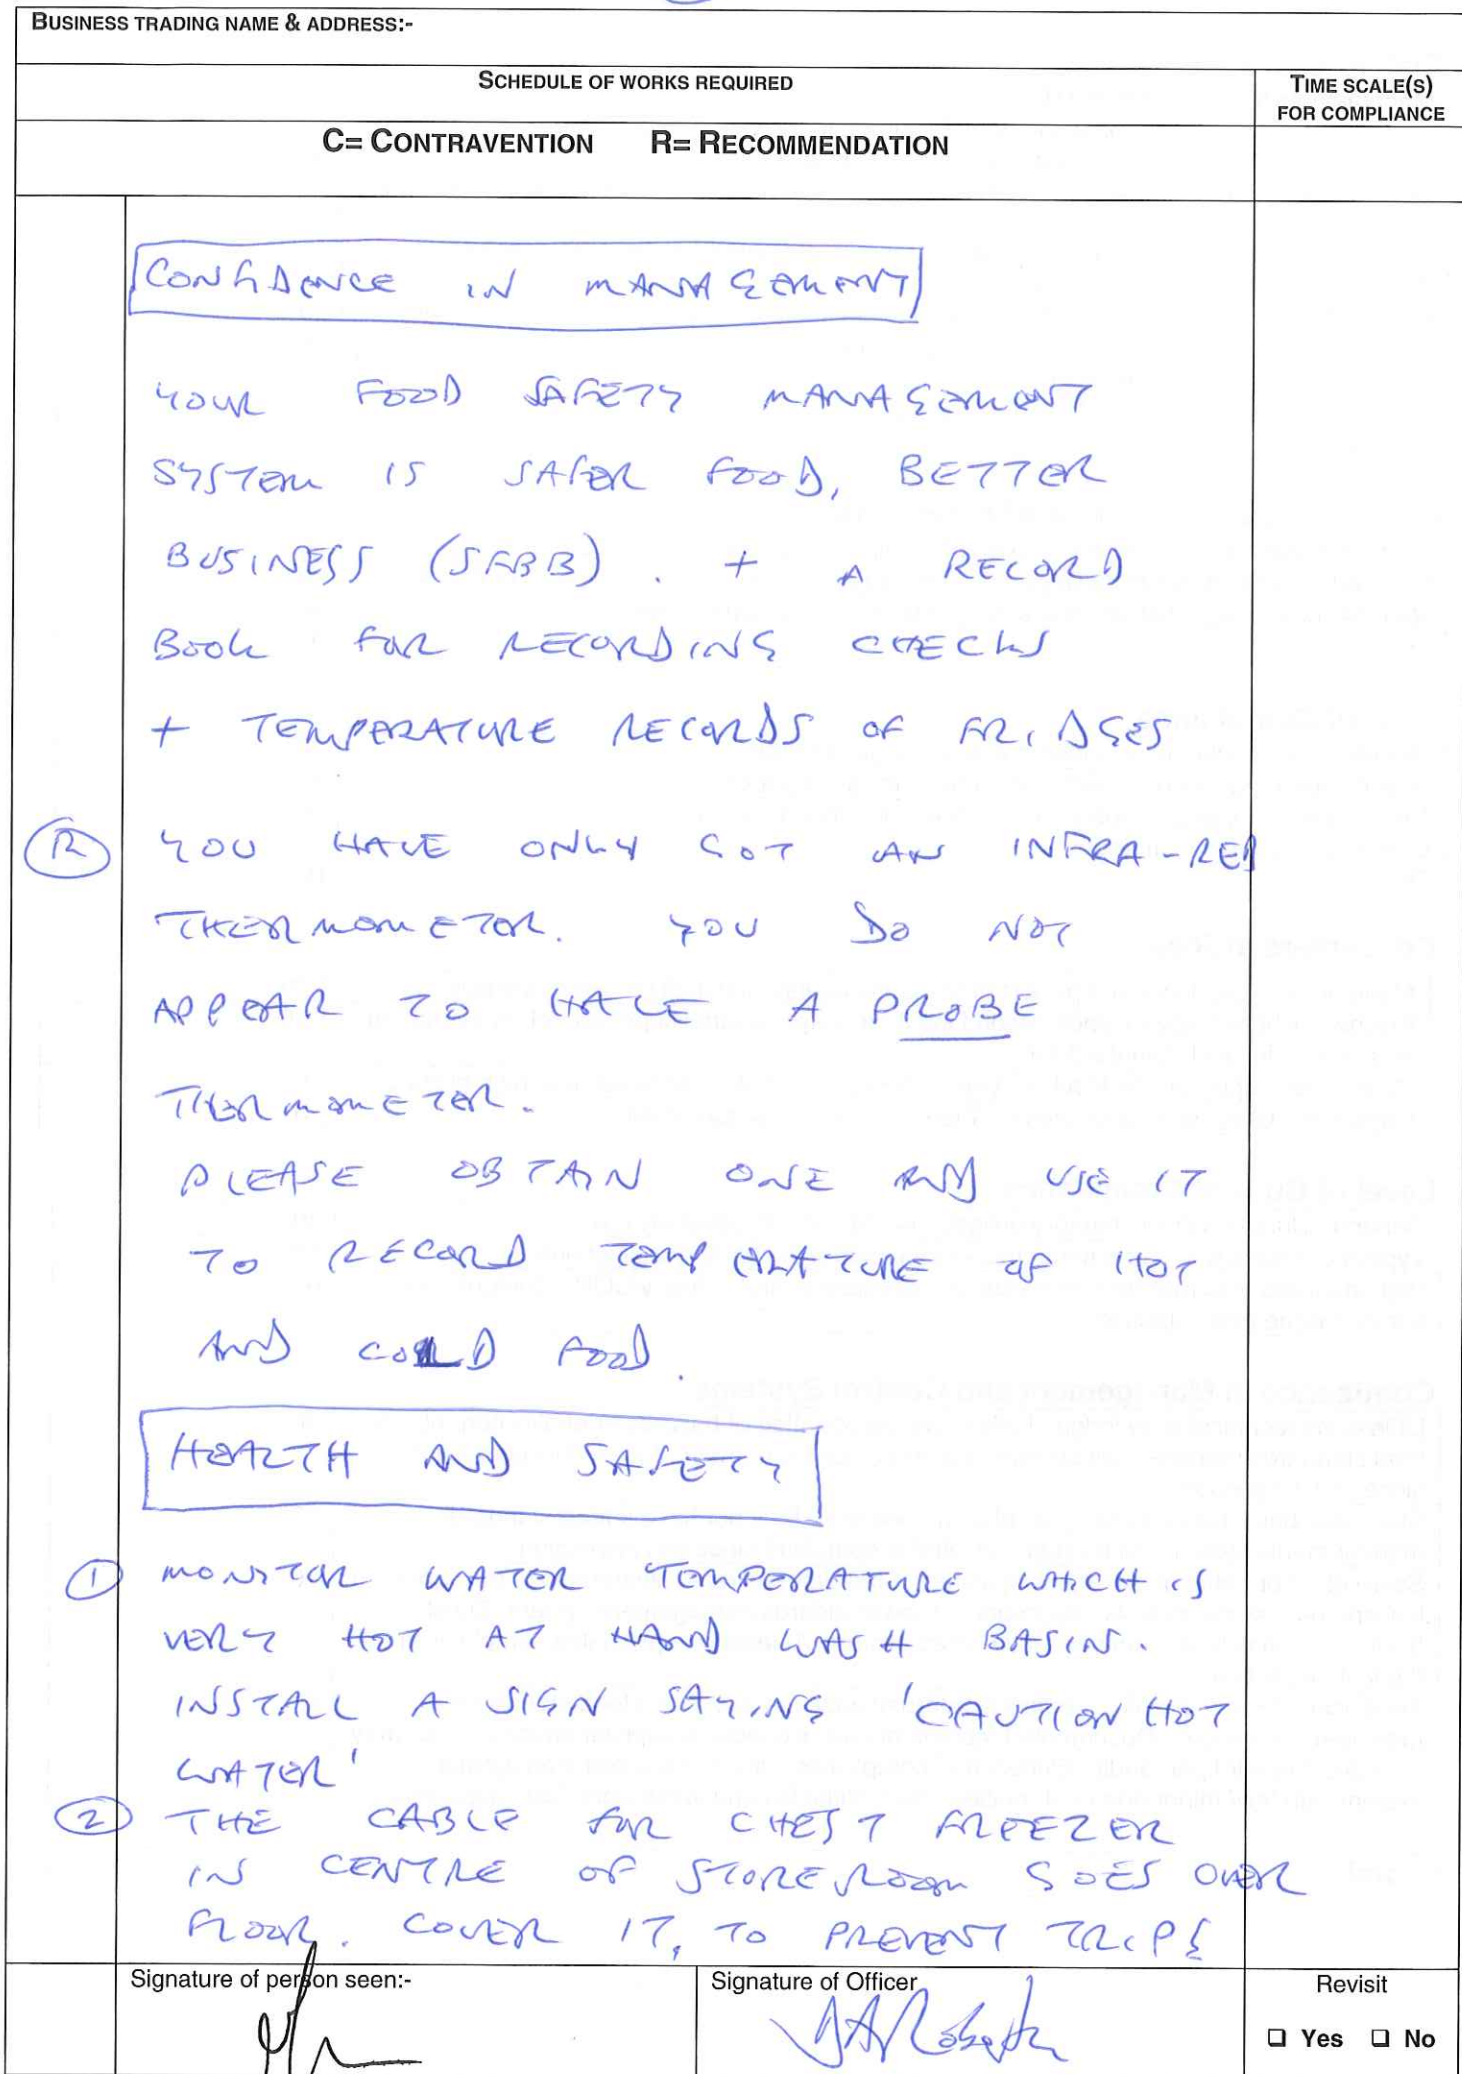 BUSINESS TRADING NAME & ADDRESS:-
SCHEDULE OF WORKS REQUIRED
TIME SCALE(S)
FOR COMPLIANCE
C= CONTRAVENTION R= RECOMMENDATION
CONFIDENCE IN MANAGEMENT
YOUR FOOD SAFETY MANAGEMENT
SYSTEM IS SAFER FOOD, BETTER
BUSINESS (SFBB). + A RECORD
BOOK FOR RECORDING CHECKS
+ TEMPERATURE RECORDS OF FRIDGES
R YOU HAVE ONLY GOT AN INFRA-RED
THERMOMETER. YOU DO NOT
APPEAR TO HAVE A PROBE
THERMOMETER.
PLEASE OBTAIN ONE AND USE IT
TO RECORD TEMPERATURE OF HOT
AND COLD FOOD.
HEALTH AND SAFETY
1 MONITOR WATER TEMPERATURE WHICH IS
VERY HOT AT HAND WASH BASIN.
INSTALL A SIGN SAYING 'CAUTION HOT
WATER'
2 THE CABLE FOR CHEST FREEZER
IN CENTRE OF STOREROOM GOES OVER
FLOOR. COVER IT, TO PREVENT TRIPS
Signature of person seen:-
Signature of Officer
Revisit
❑ Yes ❑ No